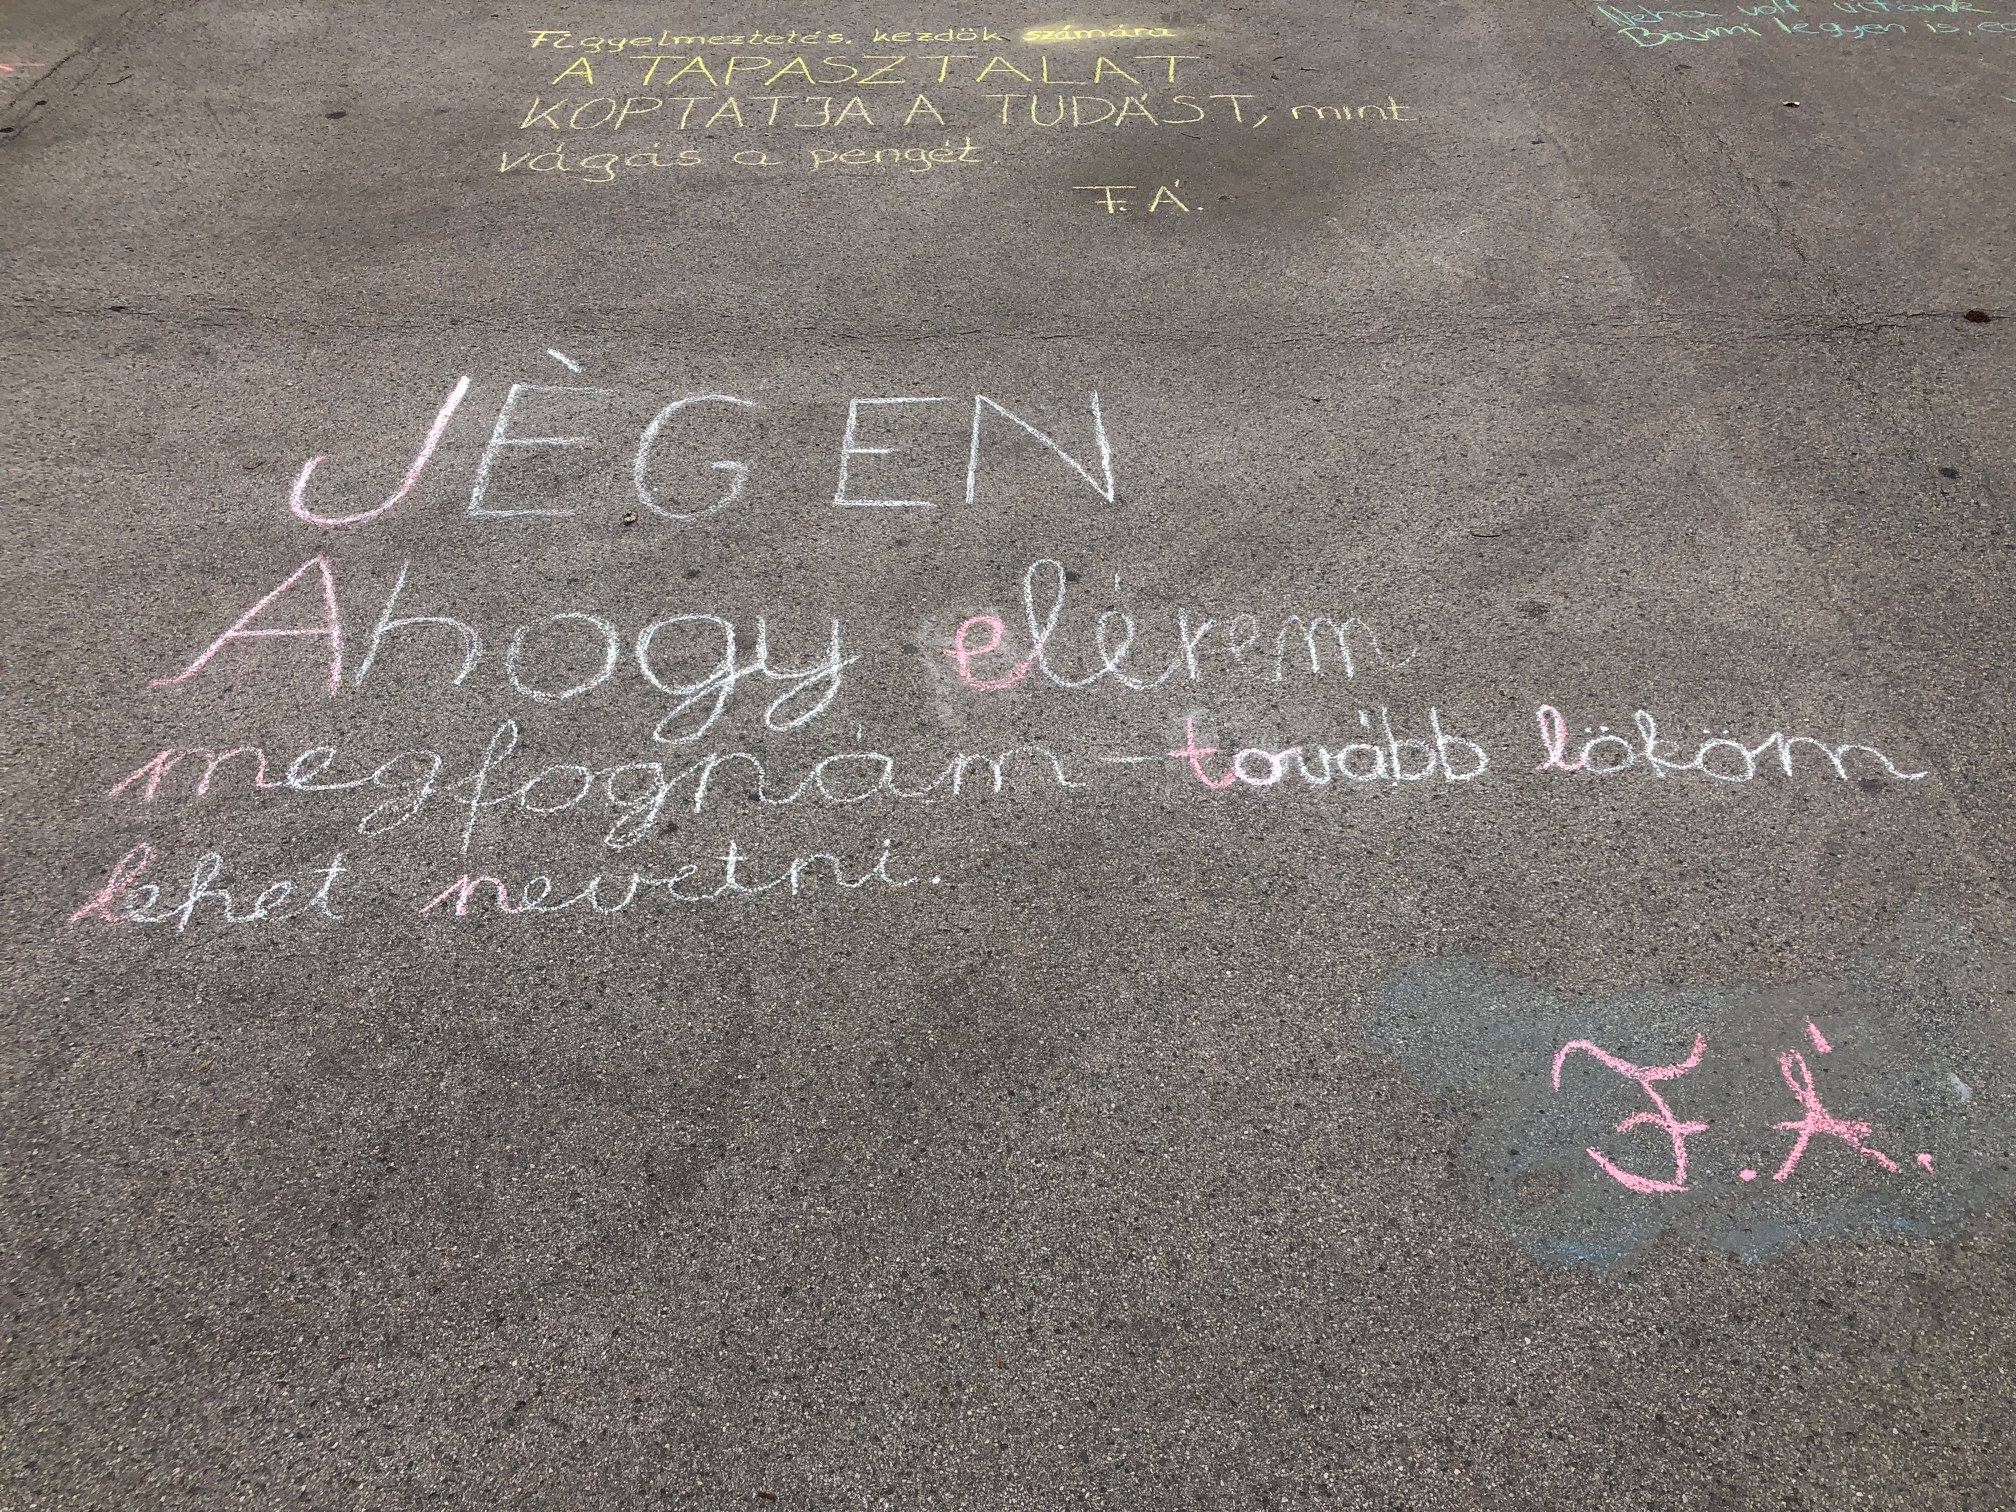 Figyelmeztetés kezdők számára
A TAPASZTALAT
KOPTATJA A TUDÁST, mint
vágás a pengét.
F. Á.
Néha volt utánk
Bármi legyen is,
JÈGEN
Ahogy elérem
megfognám - tovább lököm
lehet nevetni.
F. Á.